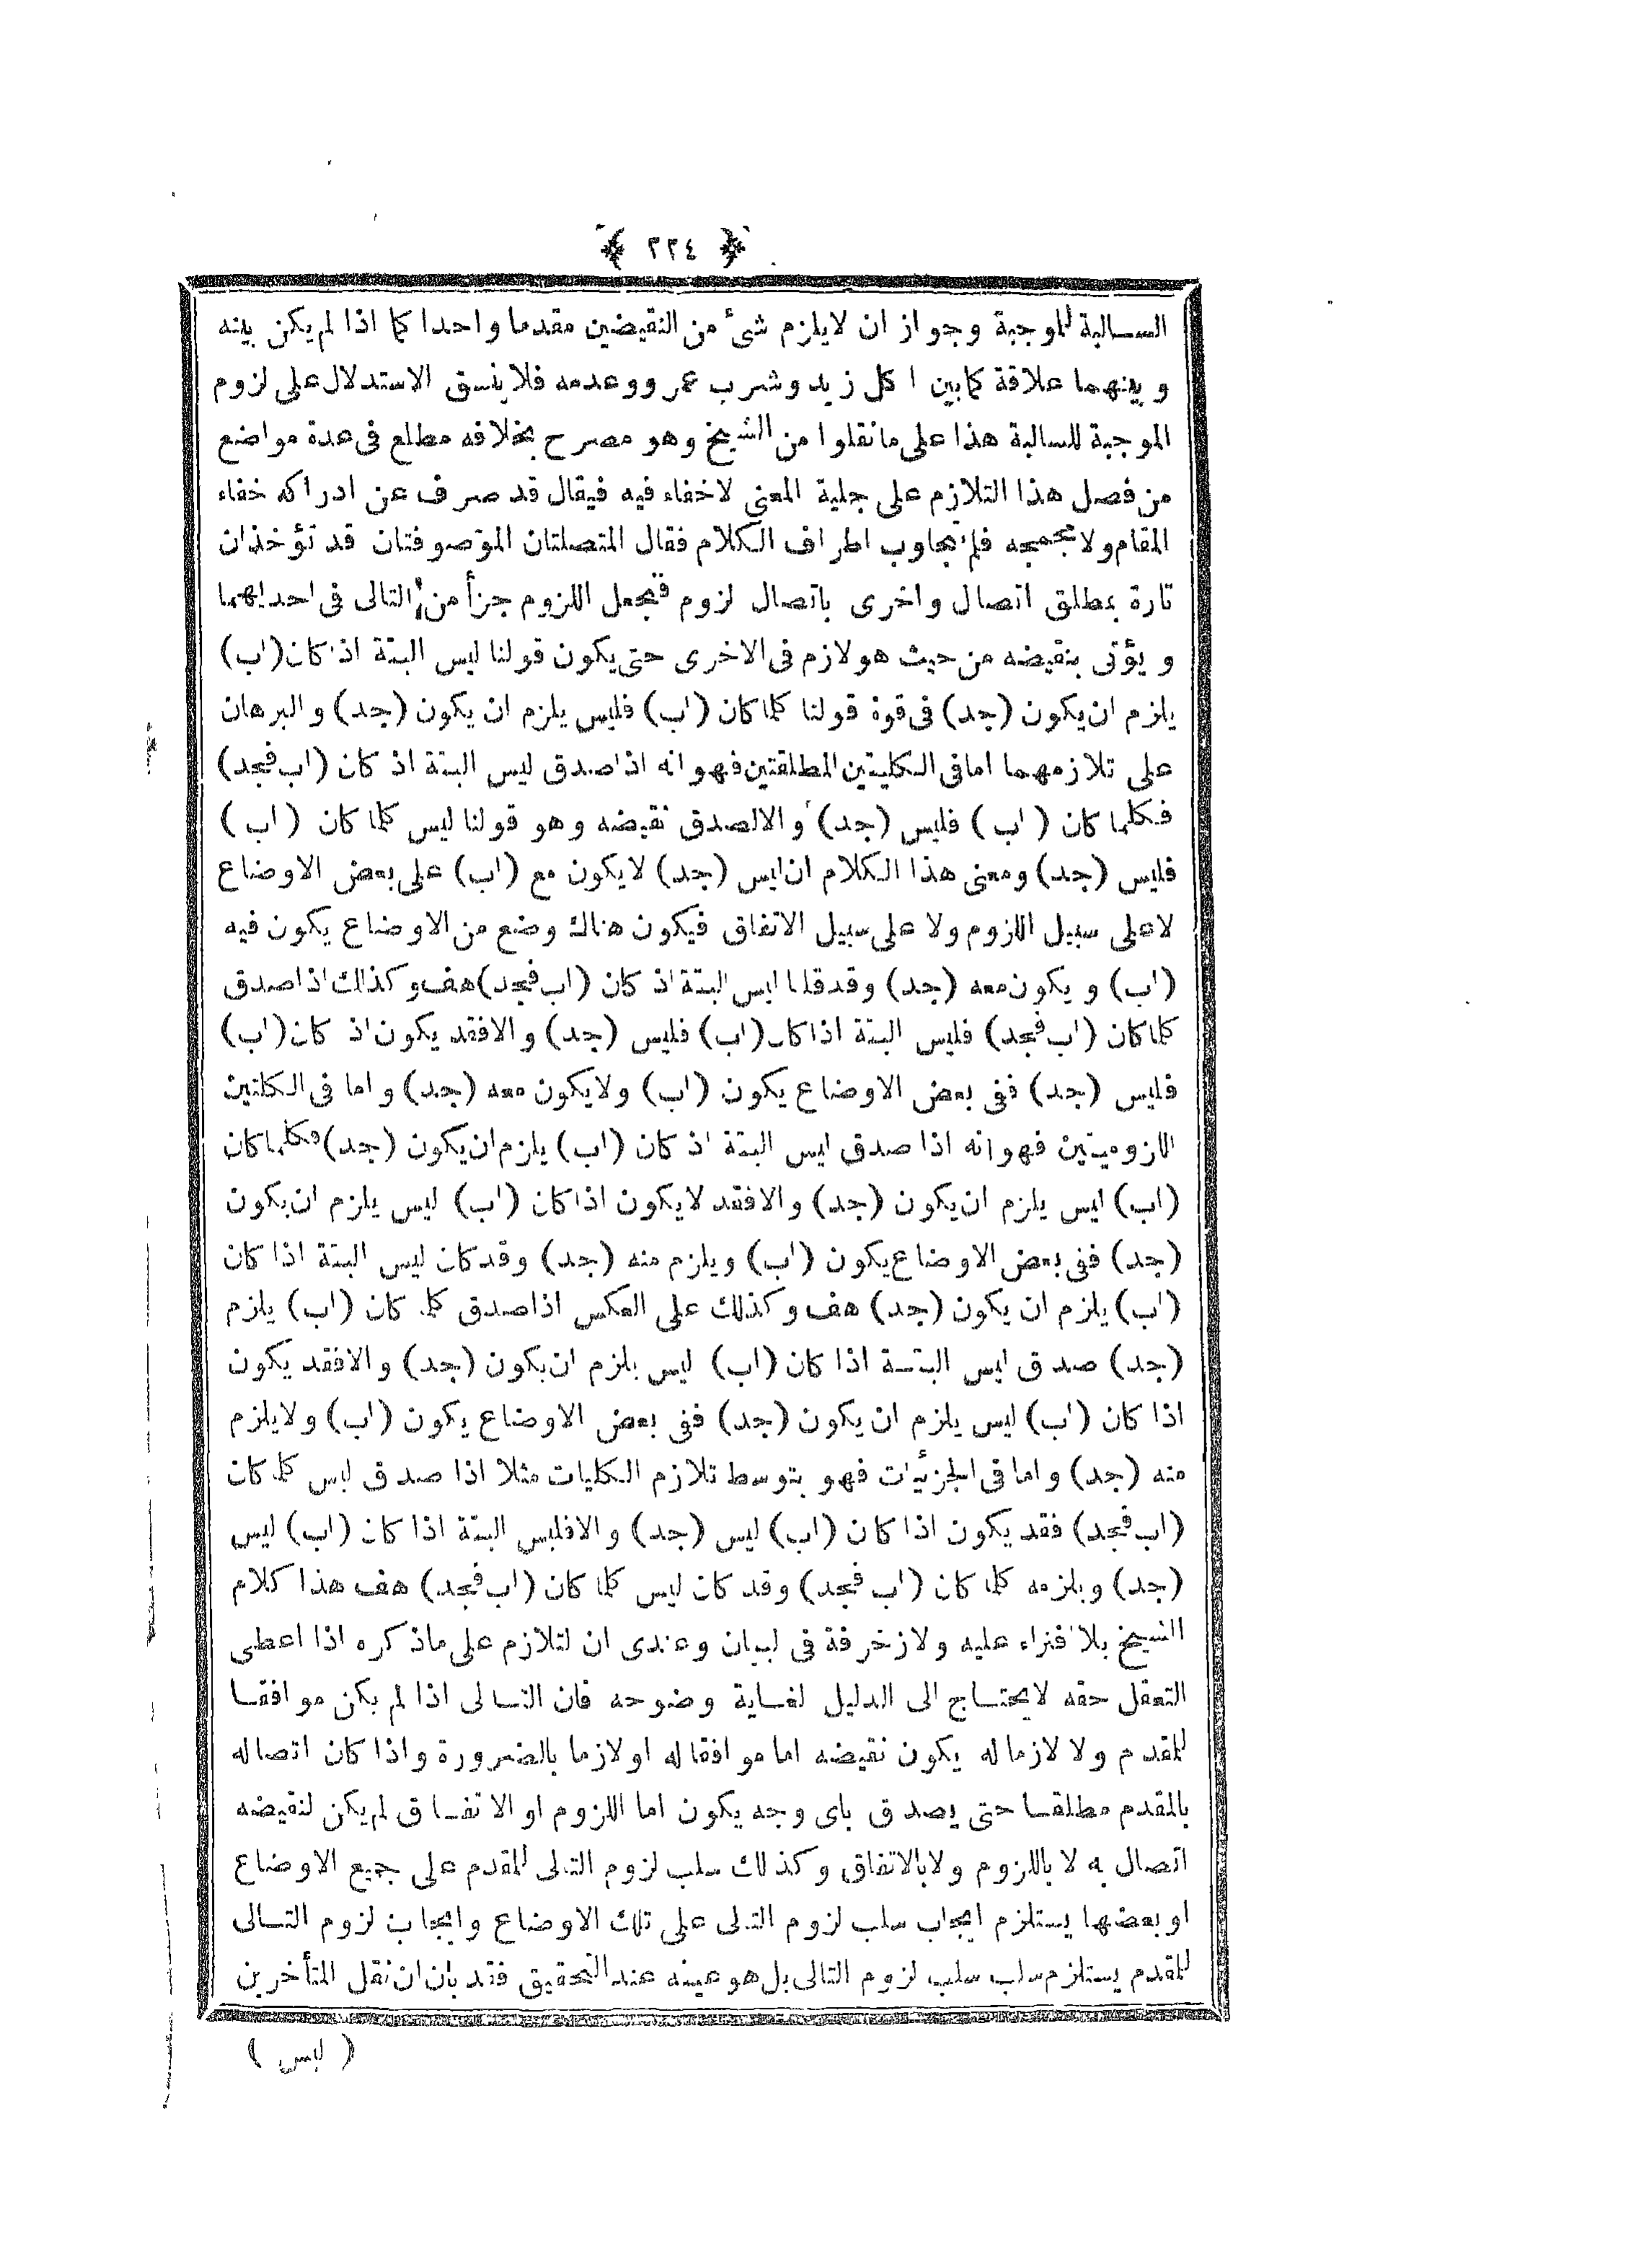 ﴿ ٢٢٤ ﴾
السالبة للموجبة وجواز ان لايلزم شئ من النقيضين مقدما واحدا كما اذا لم يكن بينه
وبينهما علاقة كمابين اكل زيد وشرب عمرو وعدمه فلا ينسق الاستدلال على لزوم
الموجبة للسالبة هذا على مانقلوا من الشيخ وهو مصرح بخلافه مطلع فى عدة مواضع
من فصل هذا التلازم على جلية المعنى لاخفاء فيه فيقال قد صرف عن ادراكه خفاء
المقام ولا تجمجه فلم يجاوب اطراف الكلام فقال المتصلتان الموصوفتان قد تؤخذان
تارة بمطلق اتصال واخرى باتصال لزوم فيجعل اللزوم جزأ من التالى فى احديهما
ويؤتى بنقيضه من حيث هو لازم فى الاخرى حتى يكون قولنا ليس البتة اذا كان (اب)
يلزم ان يكون (جد) فى قوة قولنا كلما كان (اب) فليس يلزم ان يكون (جد) والبرهان
على تلازمهما اما فى الكليتين المطلقتين فهو انه اذا صدق ليس البتة اذ كان (اب فجد)
فكلما كان (اب) فليس (جد) والا لصدق نقيضه وهو قولنا ليس كلما كان (اب)
فليس (جد) ومعنى هذا الكلام ان ليس (جد) لايكون مع (اب) على بعض الاوضاع
لا على سبيل اللزوم ولا على سبيل الاتفاق فيكون هناك وضع من الاوضاع يكون فيه
(اب) ويكون معه (جد) وقد قلنا ليس البتة اذ كان (اب فجد) هف وكذلك اذا صدق
كلما كان (اب فجد) فليس البتة اذا كان (اب) فليس (جد) والا فقد يكون اذ كان (اب)
فليس (جد) ففى بعض الاوضاع يكون (اب) ولا يكون معه (جد) واما فى الكلتين
اللزوميتين فهو انه اذا صدق ليس البتة اذ كان (اب) يلزم ان يكون (جد) فكلما كان
(اب) ليس يلزم ان يكون (جد) والا فقد لا يكون اذا كان (اب) ليس يلزم ان يكون
(جد) ففى بعض الاوضاع يكون (اب) ويلزم منه (جد) وقد كان ليس البتة اذا كان
(اب) يلزم ان يكون (جد) هف وكذلك على العكس اذا صدق كلما كان (اب) يلزم
(جد) صدق ليس البتة اذا كان (اب) ليس يلزم ان يكون (جد) والا فقد يكون
اذا كان (اب) ليس يلزم ان يكون (جد) ففى بعض الاوضاع يكون (اب) ولا يلزم
منه (جد) واما فى الجزئيات فهو بتوسط تلازم الكليات مثلا اذا صدق ليس كلما كان
(اب فجد) فقد يكون اذا كان (اب) ليس (جد) والا فليس البتة اذا كان (اب) ليس
(جد) ويلزمه كلما كان (اب فجد) وقد كان ليس كلما كان (اب فجد) هف هذا كلام
الشيخ بلا افتراء عليه ولا زخرفة فى البيان وعندى ان التلازم على ماذكره اذا اعطى
التعقل حقه لا يحتاج الى الدليل لغاية وضوحه فان التالى اذا لم يكن موافقا
للمقدم ولا لازما له يكون نقيضه اما موافقا له او لازما بالضرورة واذا كان اتصاله
بالمقدم مطلقا حتى يصدق باى وجه يكون اما اللزوم او الاتفاق لم يكن لنقيضه
اتصال به لا باللزوم ولا بالاتفاق وكذلك سلب لزوم التالى للمقدم على جميع الاوضاع
او بعضها يستلزم ايجاب سلب لزوم التالى على تلك الاوضاع وايجاب لزوم التالى
للمقدم يستلزم سلب سلب لزوم التالى بل هو عينه عند التحقيق فقد بان ان نقل المتأخرين
( ليس )